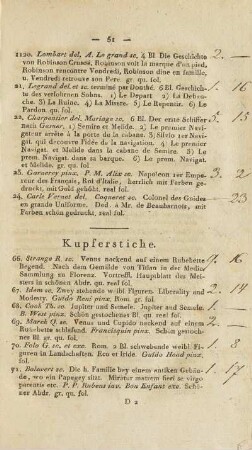 — 61 —
1120. Lombart del. A. Le grand sc. 4 Bl. Die Geschichte 2. —
von Robinson Crusoe. Robinson voit la marque d'un pied,
Robinson rencontre Vendredi, Robinson dine en famille,
u. Vendredi retrouve son Pere. gr. qu. fol.
21. Legrand del. et sc. terminé par Bouthé. 6 Bl. Geschich- 1. 16
te des verlohrnen Sohns. 1) Le Depart 2) La Debau-
che. 3) Le Ruine. 4) La Misere. 5) Le Repentir. 6) Le
Pardon qu. fol.
22. Charpentier del. Mariage sc. 6 Bl. Der erste Schiffer 5. 15
nach Gesner, 1) Semire et Melide. 2) Le premier Navi-
gateur arrêté à la porte du cabane. 3) Silvio 1er Navi-
gat. qui decouvre l'idée de la navigation. 4) Le premier
Navigat. et Melide dans la cabane de Semire. 5) Le
premier Navigat. et Melide. 6) Le premier Navigat.
au meme instant. gr. qu. fol.
23. Garnerey pinx. P. M. Alix sc. Napoleon 1er Empe- 3. 2
reur des Français, Roi d'Italie, herrlich mit Farben ge-
druckt, mit Gold gehöht. reel fol.
24. Carle Vernet del. Coqueret sc. Colonel des Guides — 23
en grande Uniforme. Ded. à Mr. de Beauharnois, mit
Farben schön gedruckt, reel fol.
Kupferstiche.
66. Strange R. sc. Venus nackend auf einem Ruhebette 9. 16
liegend. Nach dem Gemälde von Titian in der Medic.
Sammlung zu Florenz. Vortreffl. Hauptblatt des Mei-
sters in schönen Abdr. qu. reel fol.
67. Idem sc. Zwey stehende weibl. Figuren. Liberality and 4. —
Modesty. Guido Reni pinx. Grofs fol.
68. Cook Th. sc. Jupiter and Semele. Jupiter and Semele. 1. —
B. West pinx. Schön gestochener Bl. gr. qu. fol.
69. Marck Q. sc. Venus und Cupido nackend auf einem 2. —
Ruhebette schlafend. Franciesquin pinx. Schön gestoch-
ner Bl. gr. qu. fol.
70. Folo G. sc. et exc. Rom. 2 Bl. schwebende weibl. Fi- 1. 8
guren in Landschaften. Eco et Iride. Guido Head pinx.
fol.
71. Bolswert sc. Die h. Familie bey einem antiken Gebäu- 1. 17
de, wo ein Papegey sitzt. Miratur natam fieri se virgo
parentis etc. P. P. Rubens inv. Bon Enfant exc. Schö-
ner Abdr. gr. qu. fol.
D 2